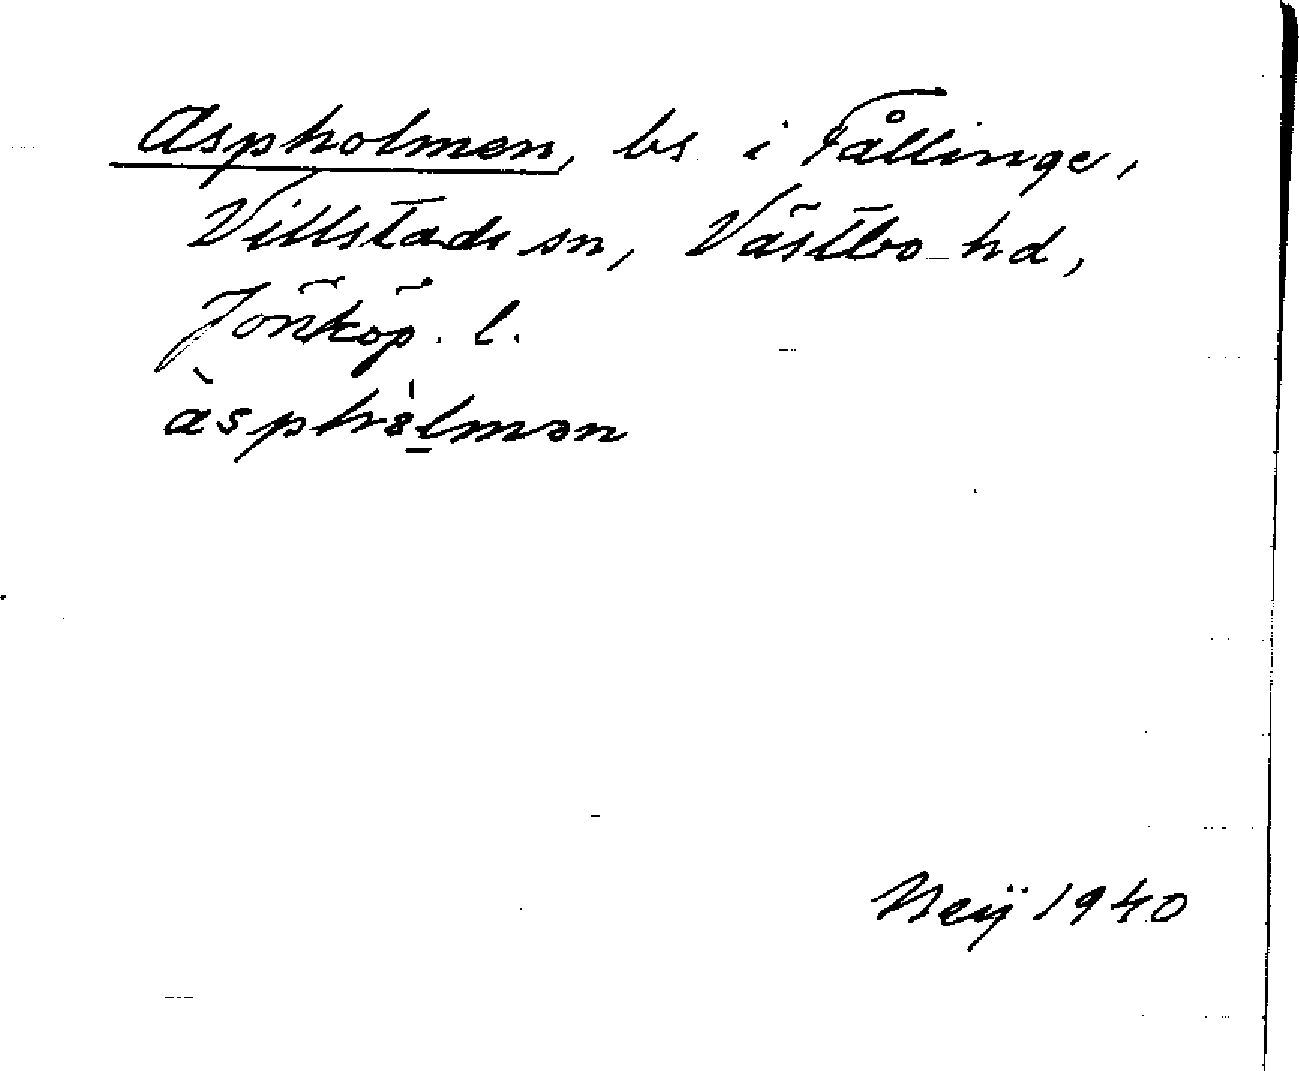 Aspholmen, bs i Fållinge,
Villstads sn, Västbo hd,
Jönköp. l.
àsphòlmən
Neij 1940